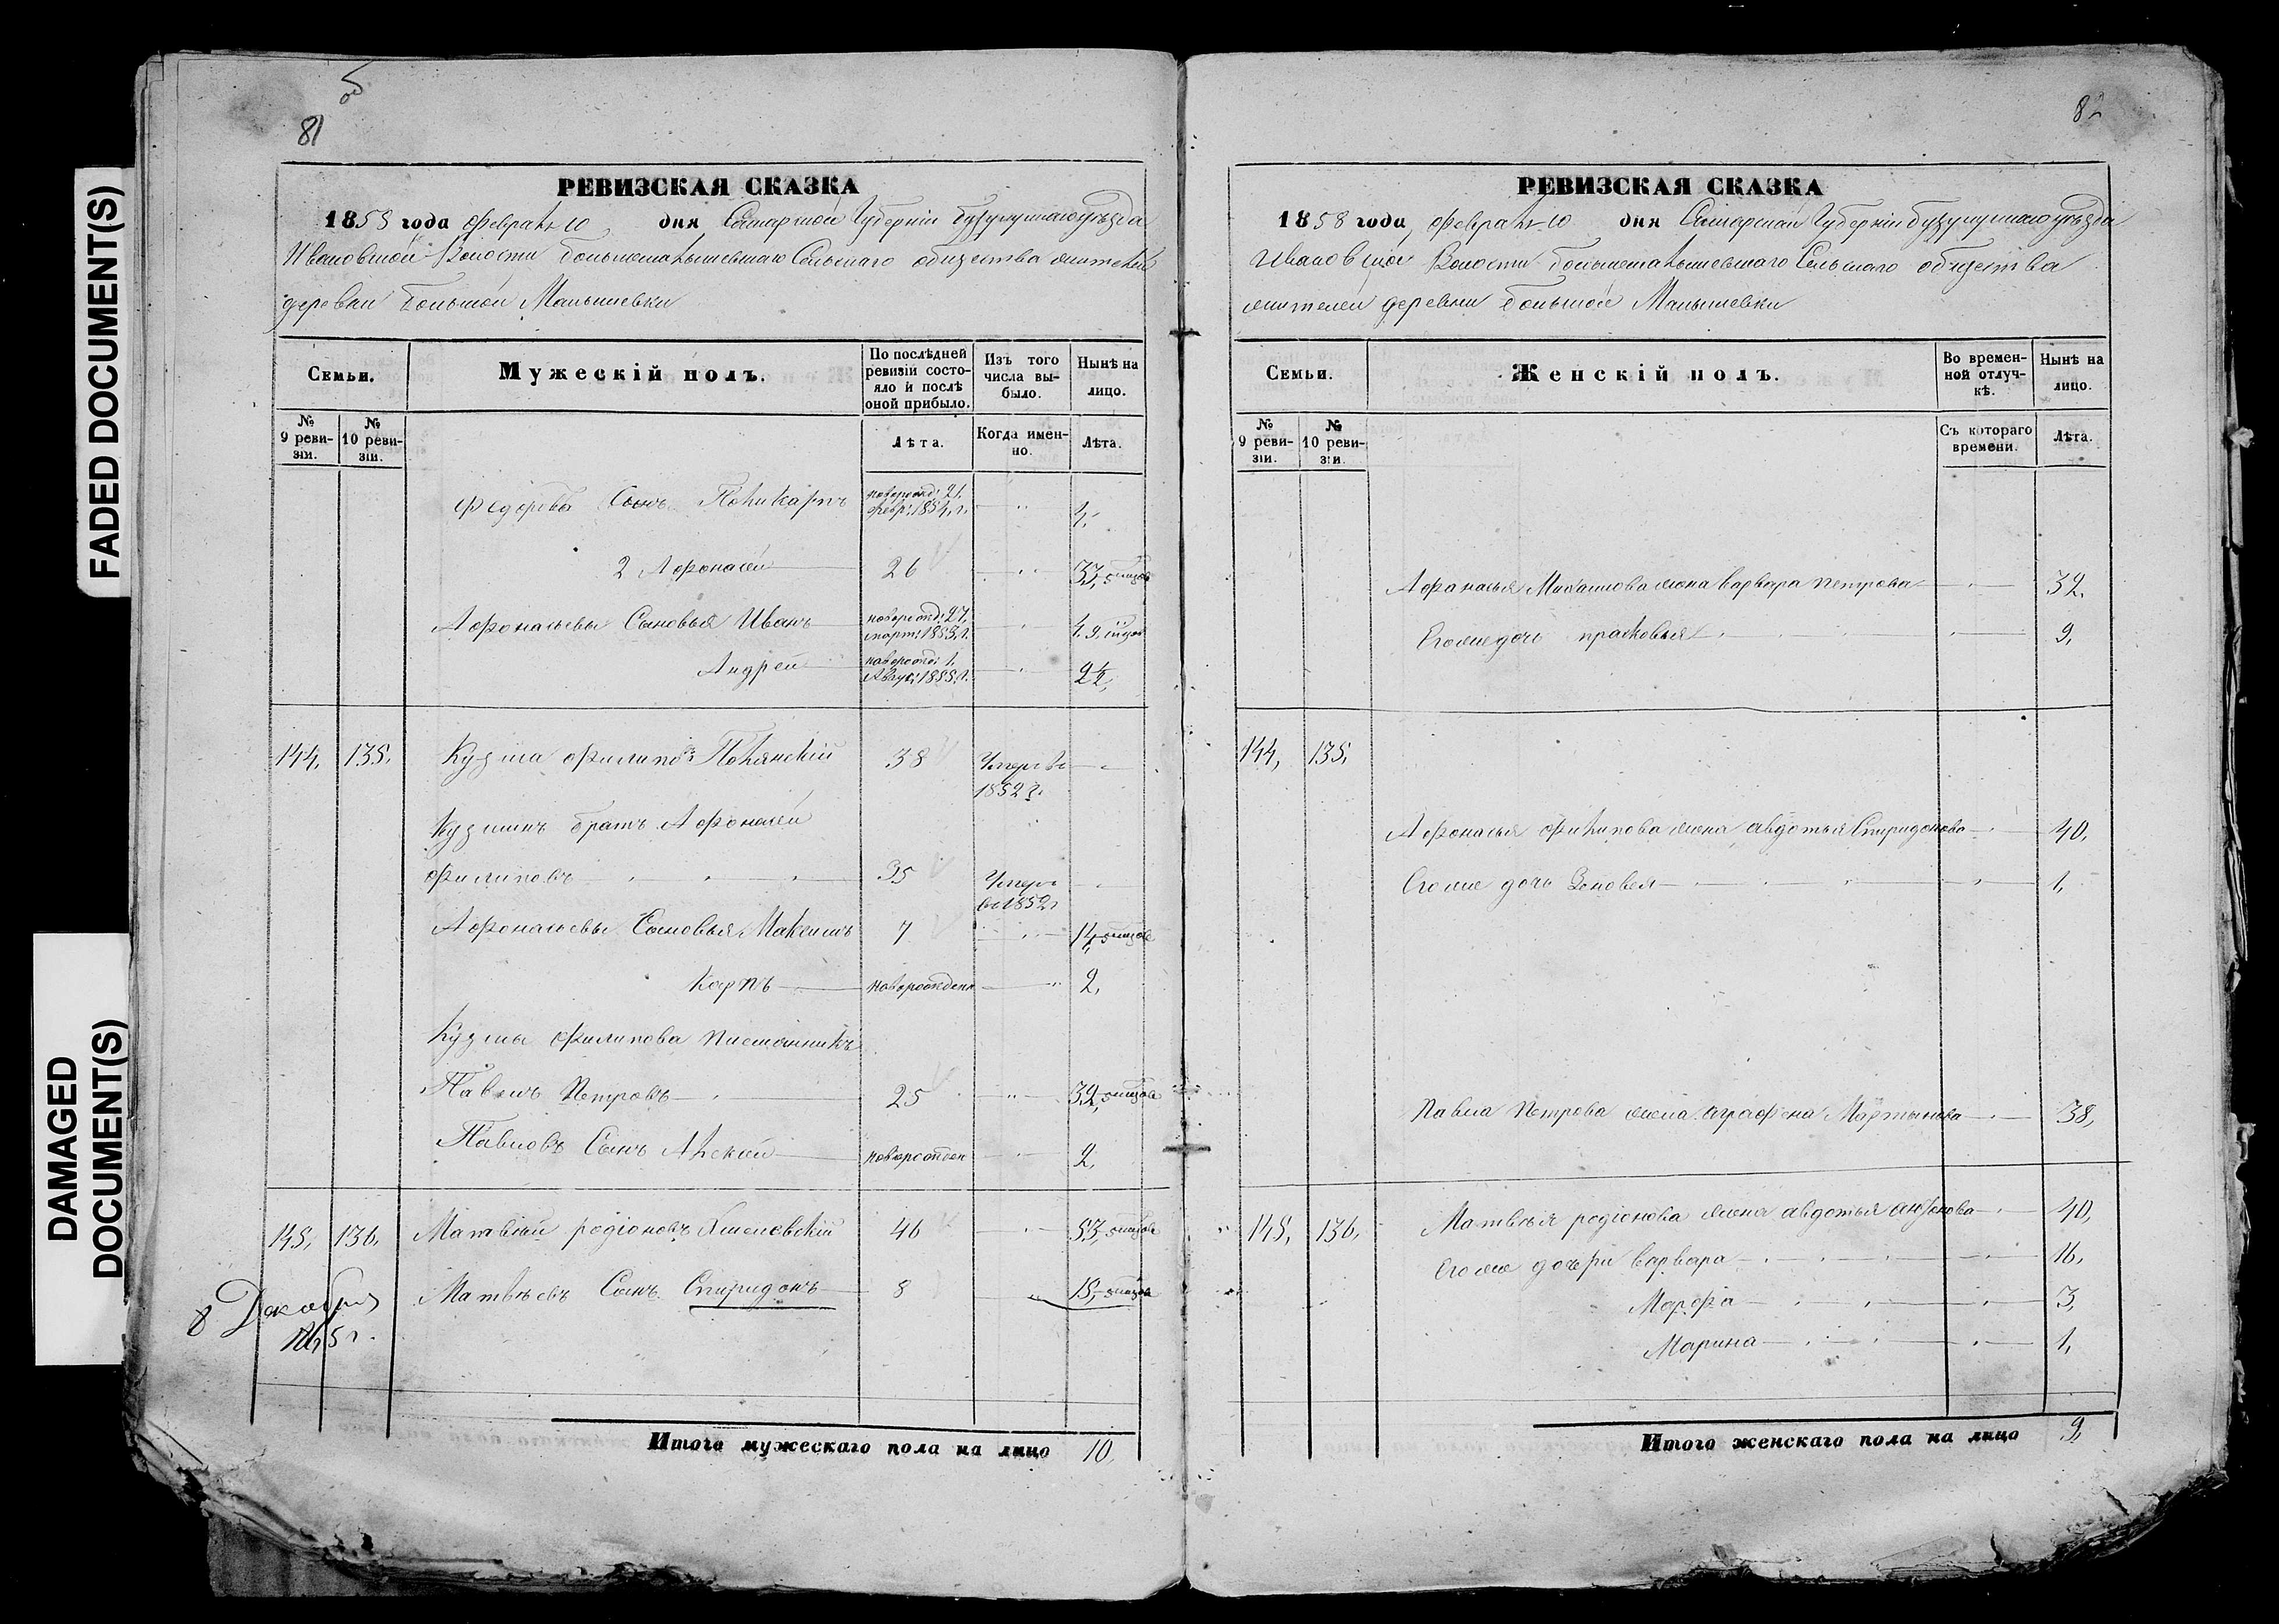 FADED DOCUMENT(S)
DAMAGED
DOCUMENT(S)
об
81
РЕВИЗСКАЯ СКАЗКА
1858 года Февраля 10 дня Самарской Губерніи Бузулукскаго уѣзда
Ивановской Волости Большемалышевскаго Сельскаго общества жителей
деревни Большой Малышевки
Семьи.
Мужескій полъ.
По послѣдней
ревизіи состо-
яло и послѣ
оной прибыло.
Изъ того
числа вы-
было.
Нынѣ на
лицо.
№
9 реви-
зіи.
№
10 реви-
зіи.
Лѣта.
Когда имен-
но.
Лѣта.
Федоровъ Сынъ Поликарпъ новорожд: 21. Февр: 1854. г. 4.
2 Афонасей 26 33,
Афонасьевы Сыновья Иванъ новорожд: 27. март: 1853. г. 4. 9.
Андрей новорожд: 1. Авгус: 1855. г. 2½,
144, 135. Кузма Филиповъ Полянскій 38 Умеръ въ 1852 г.
Кузминъ братъ Афонасей
Филиповъ 35 Умеръ въ 1852 г
Афонасьевы Сыновья Максимъ 7 14,
Карпъ новорожденъ 2,
Кузмы Филипова племянникъ
Павелъ Петровъ 25 32,
Павловъ Сынъ Алексей новорожден 2,
145, 136. Матвѣй родіоновъ 46 53,
Матвѣевъ Сынъ Спиридонъ 8 15,
8 Декабря
1865 г.
Итого мужескаго пола на лицо 10,
82
РЕВИЗСКАЯ СКАЗКА
1858 года, Февраля 10 дня Самарской Губерніи Бузулукскаго уѣзда
Ивановской Волости Большемалышевскаго Сельскаго общества
жителей деревни Большой Малышевки
Семьи.
Женскій полъ.
Во времен-
ной отлуч-
кѣ.
Нынѣ на
лицо.
№
9 реви-
зіи.
№
10 реви-
зіи.
Съ котораго
времени.
Лѣта.
Афанасья Михаилова жена Варвара Петрова 32.
Егоже дочь прасковья 9,
144, 135,
Афонасья Филипова жена авдотья Спиридонова 40,
Егоже дочь Зеновея 1,
Павла Петрова жена аграфена Мартынова 38,
145, 136, Матвѣя родіонова жена авдотья 40,
Егоже дочери Варвара 16,
Марфа 3,
Марина 1,
Итого женскаго пола на лицо 9,